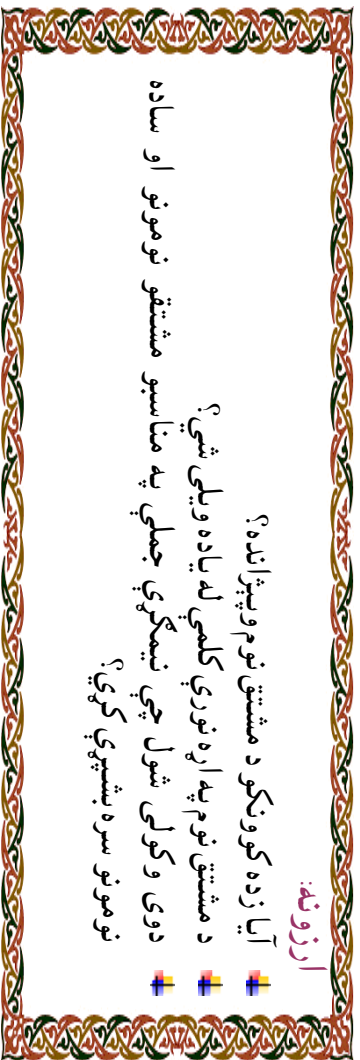 ارزونه:
آيا زده کوونکو د مشتق نوم وپيژانده؟
د مشتق نوم په اړه نورې کلمې له ياده ويلى شي؟
دوى وکولى شول چې نيمګړې جملې په مناسبو مشتقو نومونو او ساده
نومونو سره بشپړې کړي؟